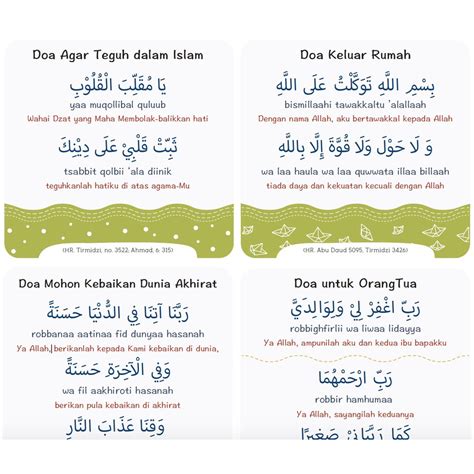 Doa Agar Teguh dalam Islam
يَا مُقَلِّبَ الْقُلُوْبِ
yaa muqollibal quluub
Wahai Dzat yang Maha Membolak-balikkan hati
ثَبِّتْ قَلْبِيْ عَلَى دِيْنِكَ
tsabbit qolbii 'ala diinik
teguhkanlah hatiku di atas agama-Mu
(HR. Tirmidzi, no. 3522; Ahmad, 6: 315)
Doa Keluar Rumah
بِسْمِ اللَّهِ تَوَكَّلْتُ عَلَى اللَّهِ
bismillaahi tawakkaltu 'alallaah
Dengan nama Allah, aku bertawakkal kepada Allah
وَ لَا حَوْلَ وَلَا قُوَّةَ إِلَّا بِاللَّهِ
wa laa haula wa laa quwwata illaa billaah
tiada daya dan kekuatan kecuali dengan Allah
(HR. Abu Daud 5095, Tirmidzi 3426)
Doa Mohon Kebaikan Dunia Akhirat
رَبَّنَا آتِنَا فِي الدُّنْيَا حَسَنَةً
robbanaa aatinaa fid dunyaa hasanah
Ya Allah, berikanlah kepada Kami kebaikan di dunia,
وَفِي الْآخِرَةِ حَسَنَةً
wa fil aakhiroti hasanah
berikan pula kebaikan di akhirat
وَقِنَا عَذَابَ النَّارِ
Doa untuk OrangTua
رَبِّ اغْفِرْ لِيْ وَلِوَالِدَيَّ
robbighfirlii wa liwaa lidayya
Ya Allah, ampunilah aku dan kedua ibu bapakku
رَبِّ ارْحَمْهُمَا
robbir hamhumaa
Ya Allah, sayangilah keduanya
كَمَا رَبَّيَانِيْ صَغِيْرًا